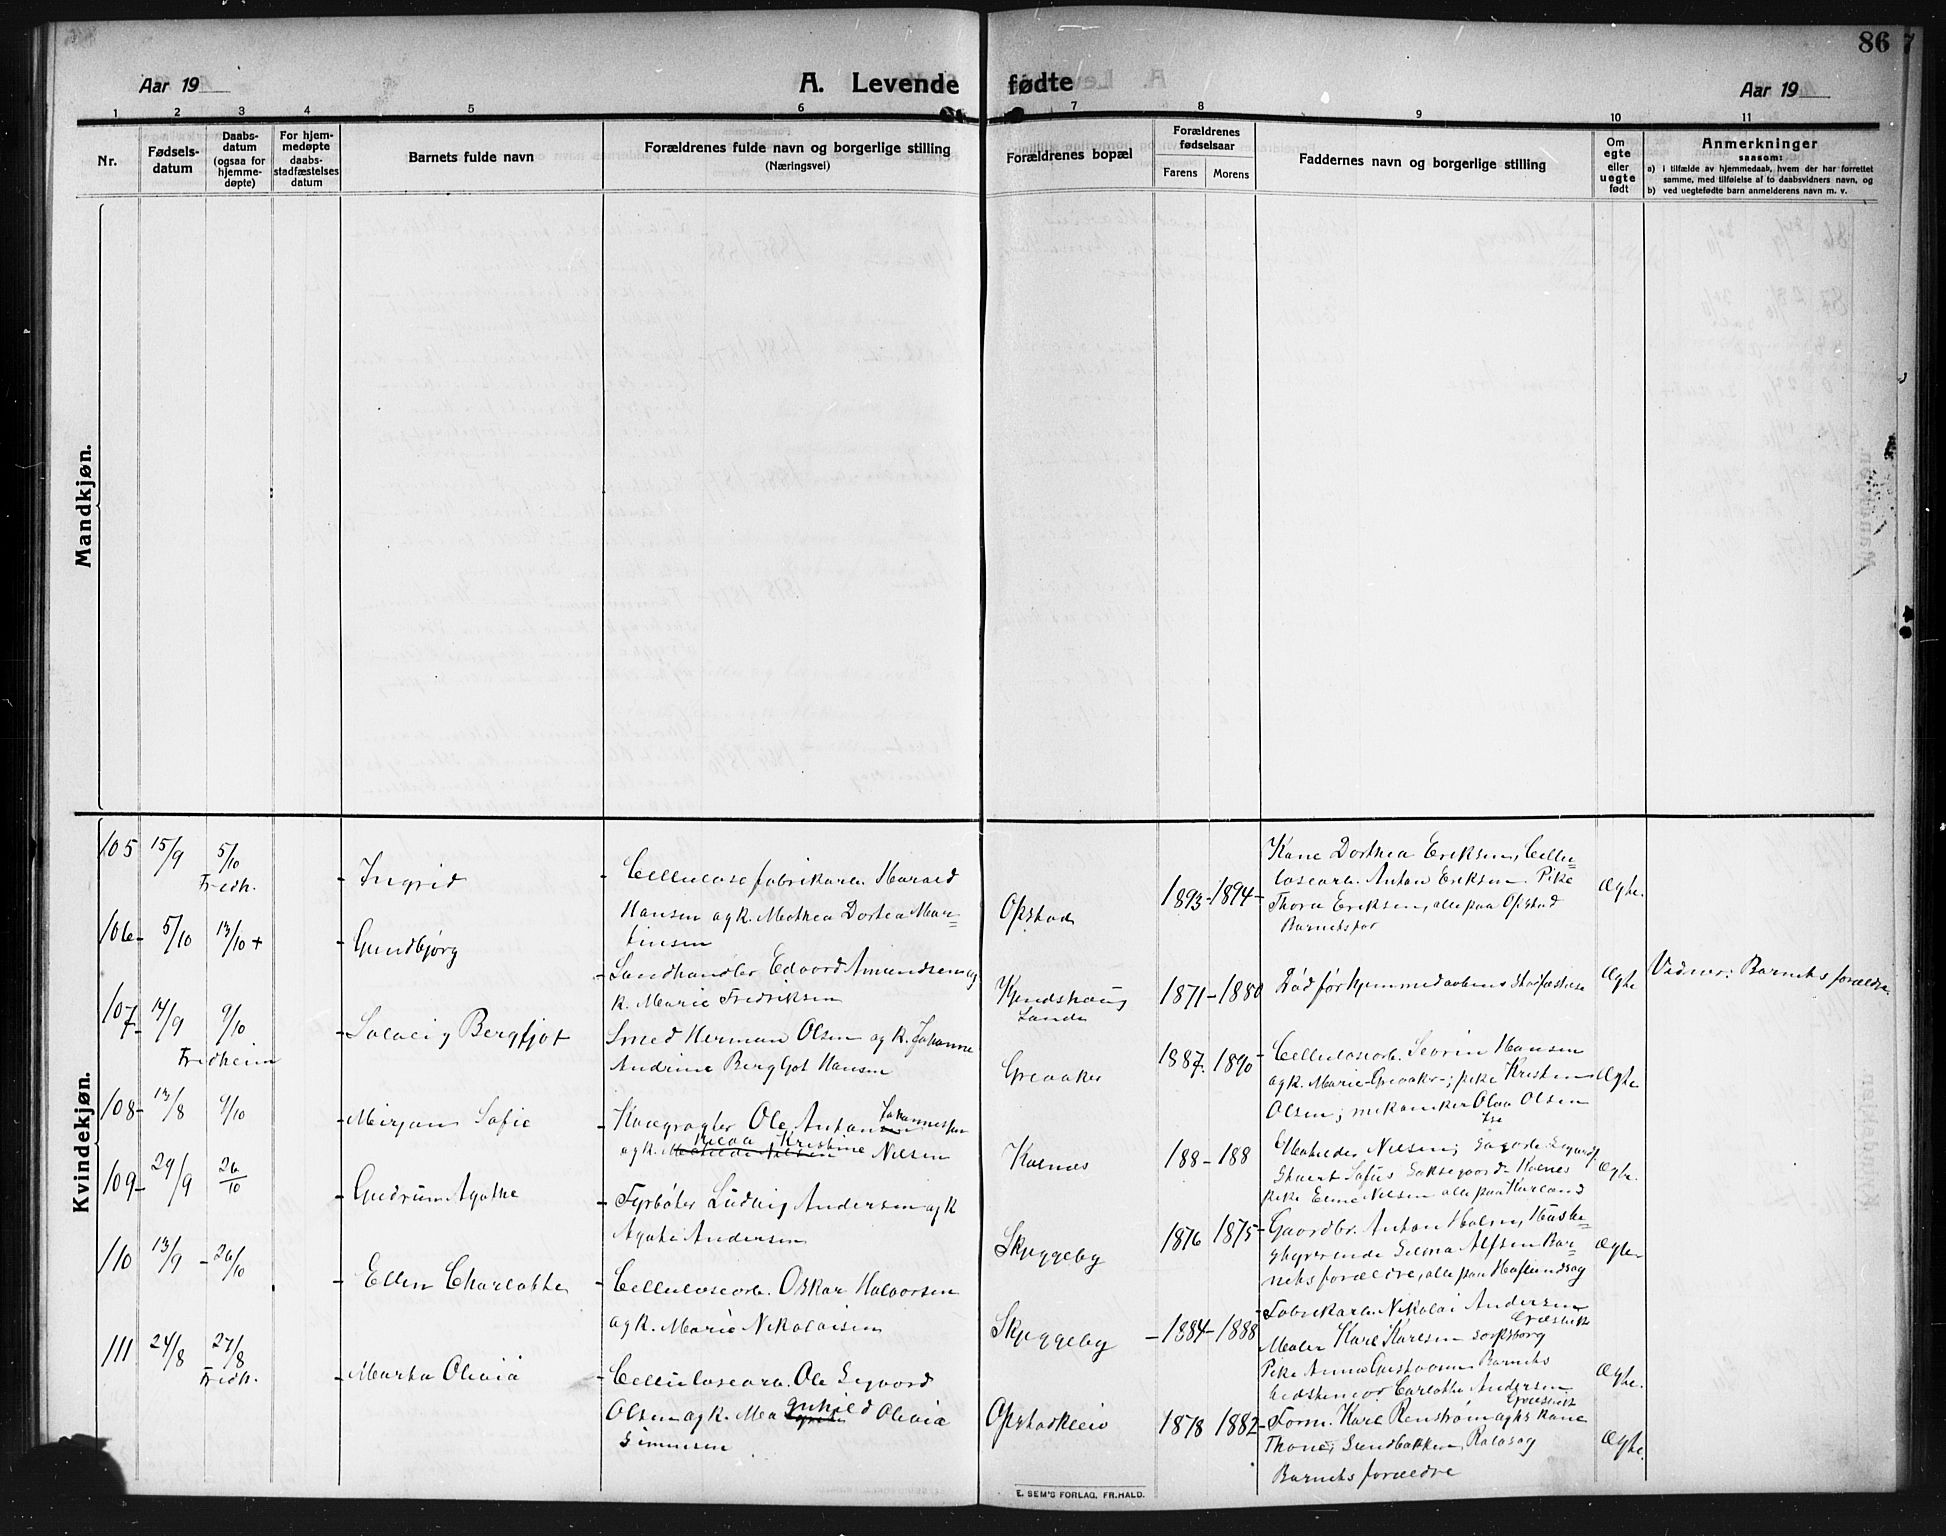 86
Aar 19
A. Levende fødte
Aar 19
1 2 3 4 5 6 7 8 9 10 11
Nr.
Fødsels-
datum
Daabs-
datum
(ogsaa for
hjemme-
døpte)
For hjem-
medøpte
daabs-
stadfæstelses
datum
Barnets fulde navn
Forældrenes fulde navn og borgerlige stilling
(Næringsvei)
Forældrenes bopæl
Forældrenes
fødselsaar
Farens Morens
Faddernes navn og borgerlige stilling
Om
egte
eller
uegte
født
Anmerkninger
saasom:
a) i tilfælde av hjemmedaab, hvem der har forrettet
samme, med tilføielse af to daabsvidners navn, og
b) ved uegtefødte barn anmelderens navn m. v.
Mandkjøn.
Kvindekjøn.
105 15/9 5/10
Fredh.
Ingrid
Cellulosefabrikarb. Harald
Hansen og k. Mathea Dortea Mar-
tinsen
Opstad
1893-1894
Kone Dorthea Eriksen, Cellu-
losearb. Anton Eriksen. Pike
Thora Eriksen, alle paa Opstad
Barnets far
Ægte.
106 5/10 13/10 +
Gundbjørg
Landhandler Edvard Amundsen og
k. Marie Fredriksen
Sande
1871-1880
Død før hjemmedaabens Stadfæstelse
Ægte
Vidner: Barnets forældre.
107 14/9 9/10
Fredheim
Solveig Bergljot
Smed Herman Olsen og k. Johanne
Andrine Bergljot Hansen
Greaaker
1887-1890
Cellulosearb. Severin Hansen
og k. Marie Greaaker; pike Kristen
Olsen; mekaniker Olaa Olsen
Ægte
108 13/8 9/10
Mirjam Sofie
Ole Anton Johannessen
og k. Kristine Nilsen
Kalnes
188-188
Nilsen;
Kalnes
pike Nilsen alle paa Kurland
Ægte.
109 29/9 26/10
Gudrun Agathe
Fyrbøter Ludvig Andersen og k
Agate Andersen
Skjeggeby
1876 1875
Gaardbr. Anton Holm, Huusbe-
styrerinde Selma Alfsen Bar-
nets forældre, alle paa Haflundsøy
Ægte
110 13/9 26/10
Ellen Charlotte
Cellulosearb. Oskar Halvorsen
og k. Marie Nikolaisen
Skjeggeby
1884-1888
Fabrikarb. Nikolai Andersen
Maler Karl Karlsen Sarpsborg
Pike Anna Gustavsen Barnets
bedstemor Carlotte Andersen
Ægte.
111 24/8 27/8
Fredh.
Marta Olivia
Cellulosearb. Ole Sigvard
Olsen og k. Olivia
Simensen
Opstadkleiv
1878 1882
Form. Karl Renstrøm og hs kone
Thone, Sundbakken, Rolvsøy
Barnets forældre
Ægte.
E. SEM'S FORLAG, FR.HALD.